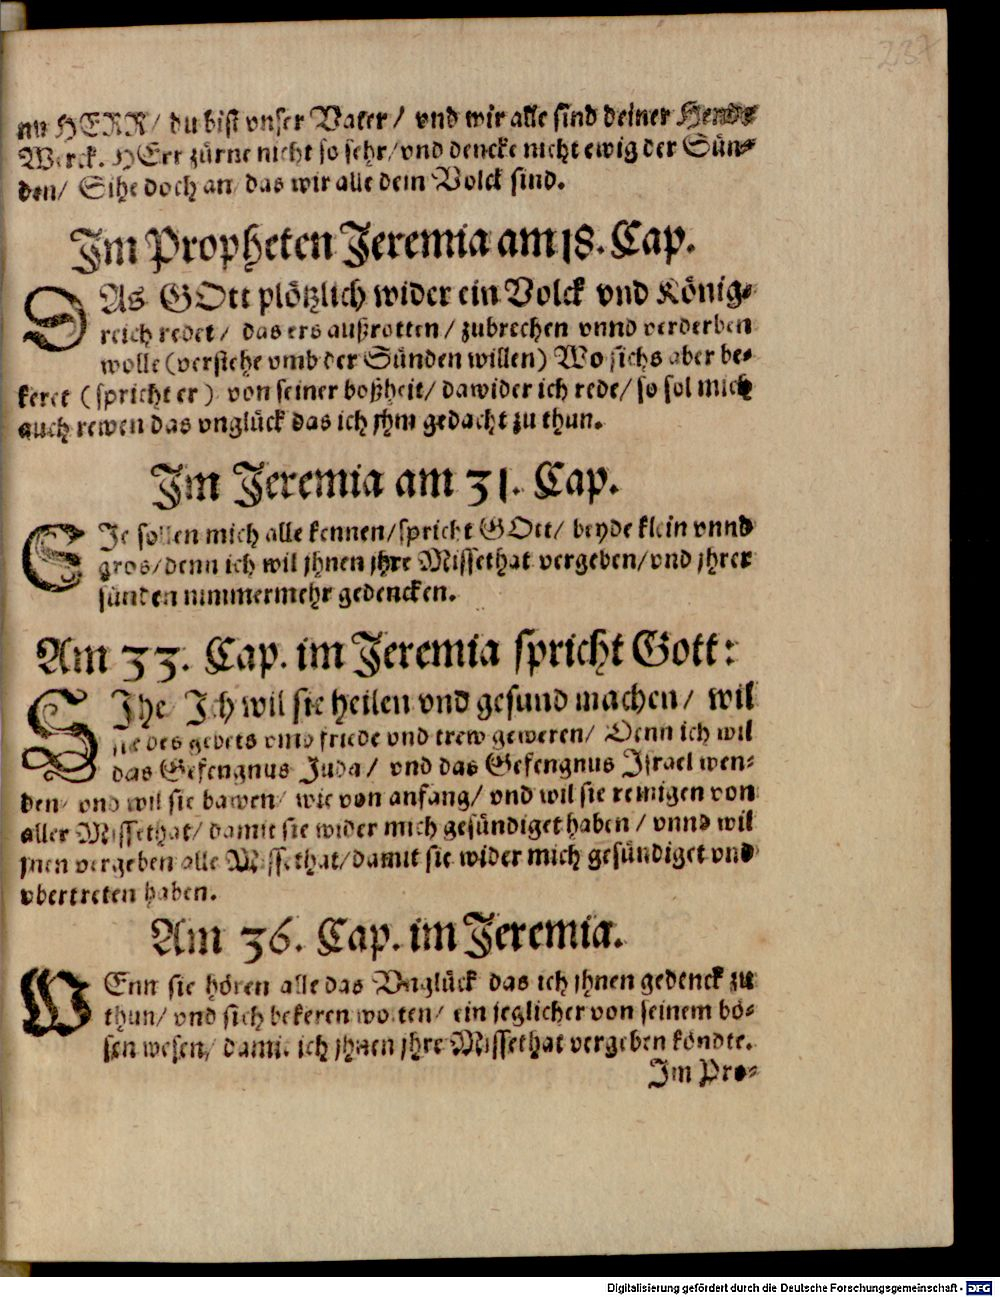 237
nu HERR/ du bist vnser Vater/ vnd wir alle sind deiner Hende
Werck. HErr zürne nicht so sehr/ vnd dencke nicht ewig der Sün-
den/ Sihe doch an/ das wir alle dein Volck sind.
Im Propheten Jeremia am 18. Cap.
DAs GOtt plötzlich wider ein Volck vnd König-
reich redet/ das ers außrotten/ zubrechen vnnd verderben
wolle (verstehe vmb der Sünden willen) Wo sichs aber be-
keret (spricht er) von seiner boßheit/ dawider ich rede/ so sol mich
auch rewen das vnglück das ich jhm gedacht zu thun.
Im Jeremia am 31. Cap.
SIe sollen mich alle kennen/ spricht GOtt/ beyde klein vnnd
gros/ denn ich wil jhnen jhre Missethat vergeben/ vnd jhrer
sünden nimmermehr gedencken.
Am 33. Cap. im Jeremia spricht Gott:
SIhe/ Ich wil sie heilen vnd gesund machen/ wil
sie des gebets vmb friede vnd trew geweren/ Denn ich wil
das Gefengnus Juda/ vnd das Gefengnus Israel wen-
den/ vnd wil sie bawen/ wie von anfang/ vnd wil sie reinigen von
aller Missethat/ damit sie wider mich gesündiget haben/ vnnd wil
jnen vergeben alle Missethat/ damit sie wider mich gesündiget vnd
vbertreten haben.
Am 36. Cap. im Jeremia.
WEnn sie hören alle das Vnglück das ich jhnen gedenck zu
thun/ vnd sich bekeren wolten/ ein jeglicher von seinem bö-
sen wesen/ damit ich jhnen jhre Missethat vergeben köndte.
Im Pro-
Digitalisierung gefördert durch die Deutsche Forschungsgemeinschaft - DFG